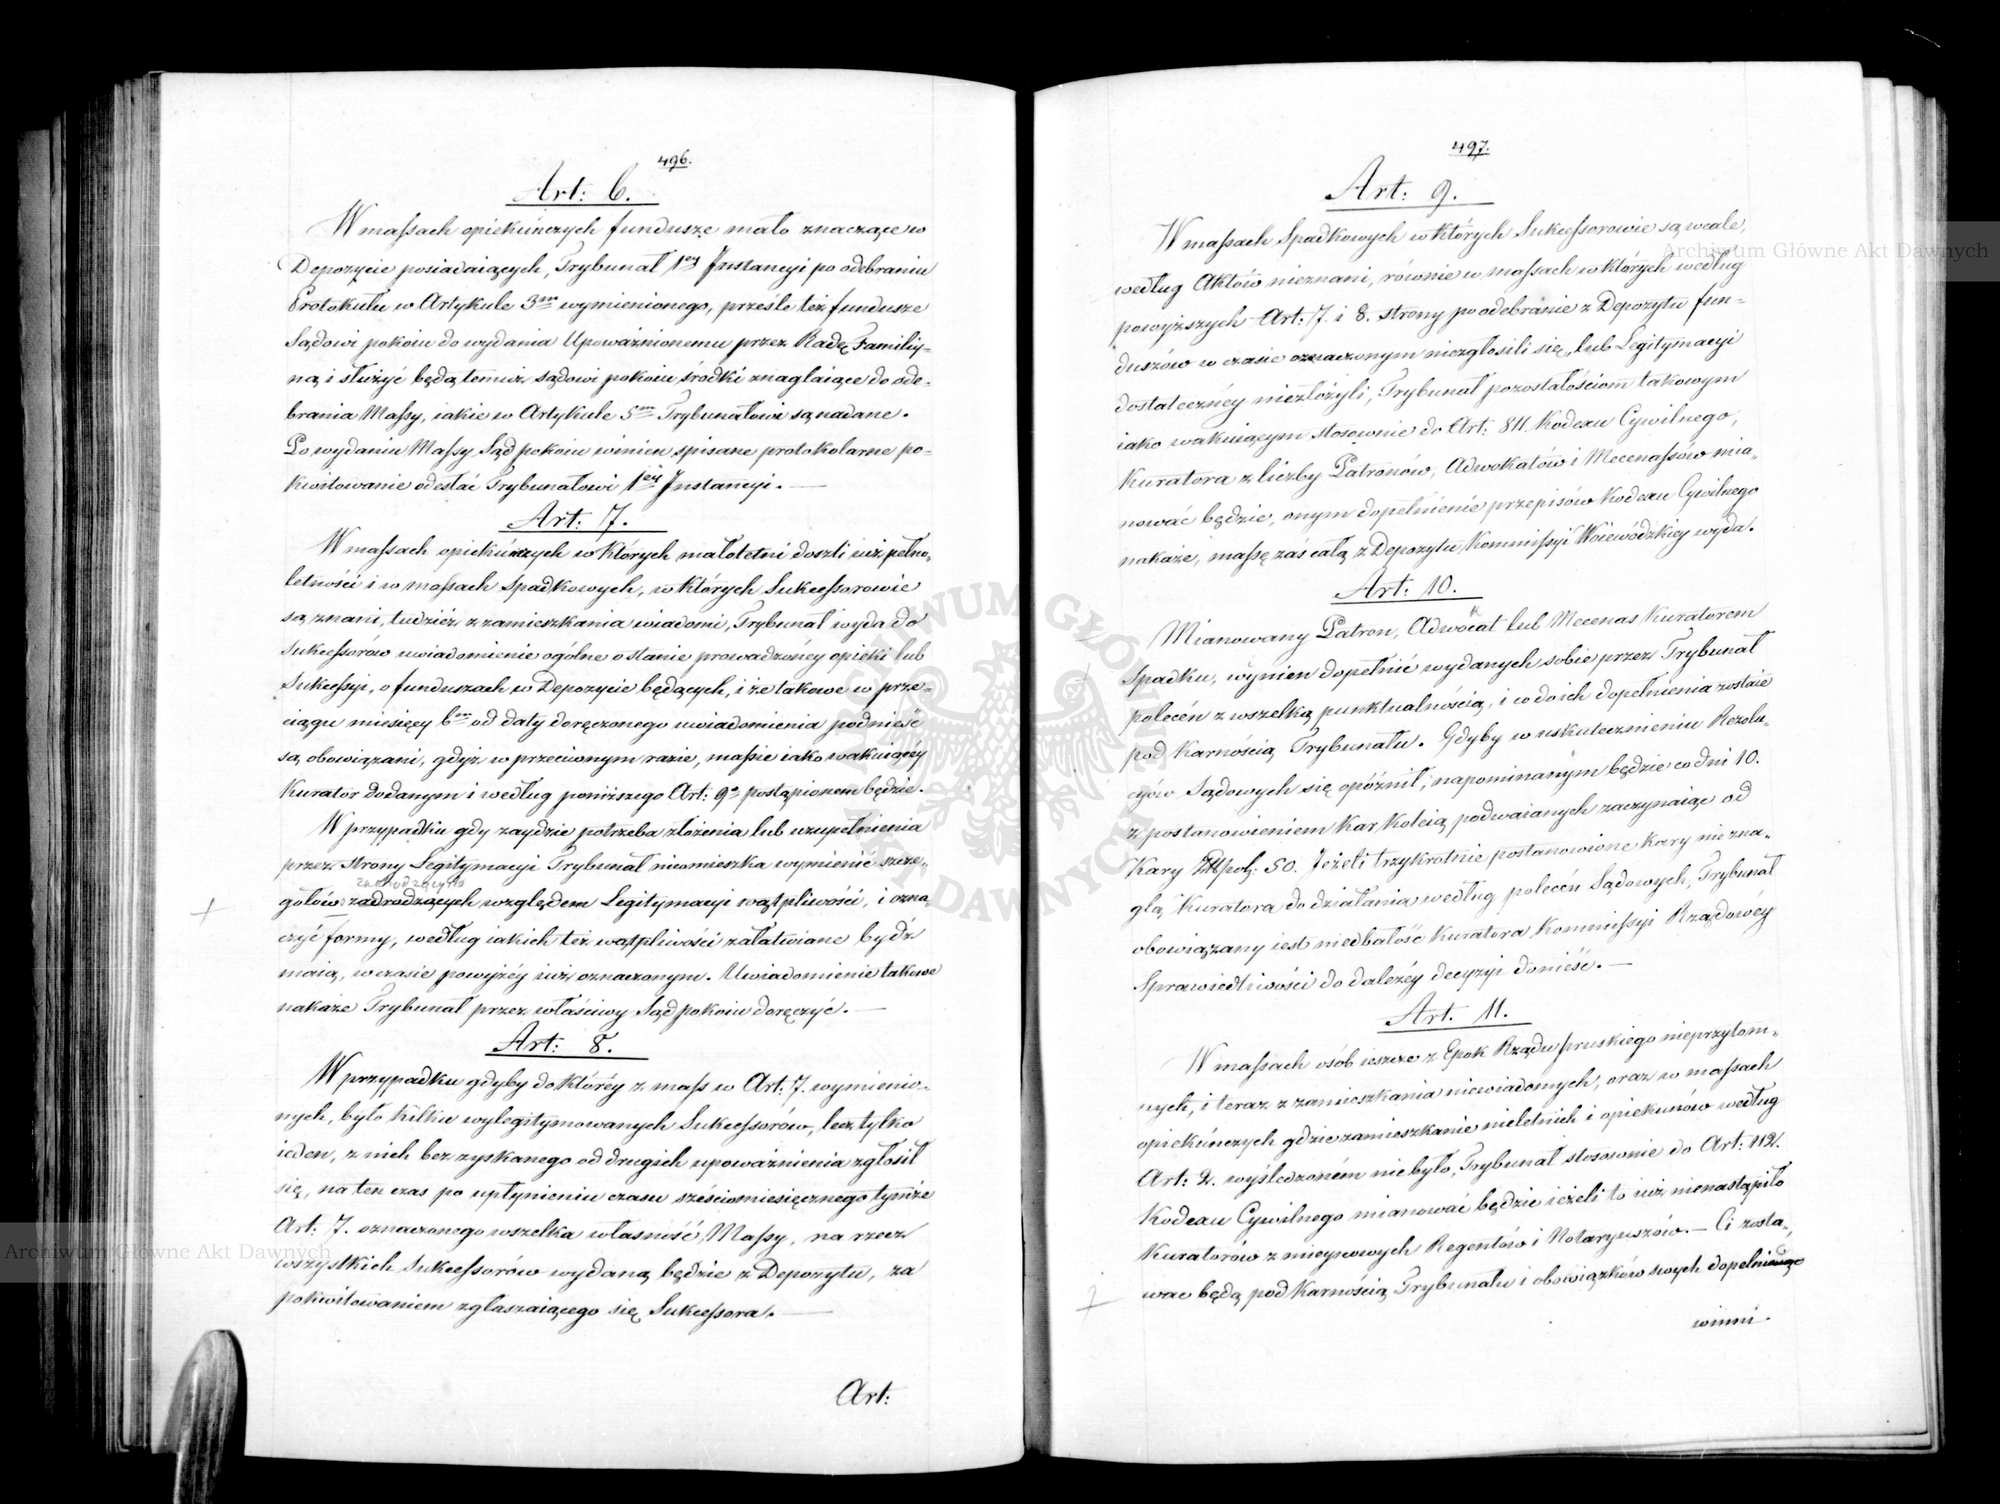 496.
Art: 6.
W massach opiekúńczych fundusze mało znaczące w
Depozycie posiadaiących, Trybunał 1ey Instancyi po odebraniu
Protokułu w Artykule 3m wymienionego, prześle też fundusze
Sądowi pokoiu do wydania Upoważnionemu przez Radę Familiy-
ną i służyć będą temuż sądowi pokoiu środki znaglaiące do ode-
brania Massy, iakie w Artykule 5m Trybunałowi są nadane.
Po wydaniu Massy Sąd pokoiu winien spisane protokolarne po-
kwitowanie odesłać Trybunałowi 1éy Instancyi. —
Art: 7.
W massach opiekúńczych w których małoletni doszli iuż pełno-
letności i w massach Spadkowych, w których Sukcessorowie
są znani, tudzież z zamieszkania wiadomi, Trybunał wyda do
Sukcessorów uwiadomienie ogólne o stanie prowadzonéy opieki lub
Sukcessyi, o funduszach w Depozycie będących, i że takowe w prze-
ciągu miesięcy 6m od daty doręczonego uwiadomienia podnieść
są obowiązani, gdyż w przeciwnym razie, massie iako wakuiącéy
Kurator dodanym i według poniższego Art: 9o postąpionem będzie.
W przypadku gdy zaydzie potrzeba złożenia lub uzupełnienia
przez strony Legitymacyi Trybunał nieomieszka wymienić szcze-
zachodzących
gółów zadrodzących względem Legitymacyi wątpliwości, i ozna-
czyć formy, według iakich też wątpliwości załatwiane bydź
maią, w czasie powyżéy iuż oznaczonym. Uwiadomienie takowe
nakaże Trybunał przez właściwy Sąd pokoiu doręczyć. —
Art: 8.
W przypadku gdyby do któréy z mass w Art: 7. wymienio-
nych, było kilku wylegitymowanych Sukcessorów, lecz tylko
ieden, z nich bez zyskanego od drugich upoważnienia zgłosił
się, na ten czas po upłynieniu czasu sześciomiesięcznego tymże
Art: 7. oznaczonego wszelka własność Massy, na rzecz
wszystkich Sukcessorów wydaną będzie z Depozytu, za
pokwitowaniem zgłaszaiącego się Sukcessora. —
Art:
497.
Art: 9.
W massach Spadkowych w których Sukcessorowie są wcale,
według Aktów nieznani, równie w massach w których według
powyższych Art: 7. i 8. strony po odebranie z Depozytu fun-
duszów w czasie oznaczonym niezgłosili się, lub Legitymacyi
dostatecznéy niezłożyli, Trybunał pozostałościom takowym
iako wakuiącym stosownie do Art: 811. Kodexu Cywilnego,
Kuratora z liczby Patronów, Adwokatów i Mecenassów mia-
nować będzie, onym dopełnienie przepisów Kodexu Cywilnego
nakaże, massę zaś całą z Depozytu Kommissyi Woiewódzkiey wyda.
Art: 10.
Mianowany Patron, Adwocat lub Mecenas Kuratorem
Spadku, wynien dopełnić wydanych sobie przez Trybunał
polecén z wszelką punktualnością, i co do ich dopełnienia zostaie
pod karnością Trybunału. Gdyby w uskutecznieniu Rezolu-
cyów Sądowych się opóźnił, napominanym będzie co dni 10.
z postanowieniem kar koleią podwaianych zaczynaiąc od
Kary Złł pol: 50. Jeżeli trzykrotnie postanowione kary nie zna-
glą Kuratora do działania według polecén Sądowych, Trybunał
obowiązany iest niedbałość Kuratora Kommissyi Rządowéy
Sprawiedliwości do dalszéy decyzyi donieść. —
Art. 11.
W massach osób ieszcze z Epok Rządu pruskiego nieprzytom-
nych, i teraz z zamieszkania niewiadomych, oraz w massach
opiekúńczych gdzie zamieszkanie nieletnich i opiekunów według
Art: 2. wyśledzoném niebyło, Trybunał stosownie do Art: 112.
Kodexu Cywilnego mianować będzie ieżeli to iuż nienastąpiło
Kuratorów z mieyscowych Regentów i Notaryuszów. — Ci zosta-
wac będą pod karnością Trybunału i obowiązków swych dopełniać
winni.
Archiwum Główne Akt Dawnych
Archiwum Główne Akt Dawnych
ARCHIWUM GŁÓWNE AKT DAWNYCH